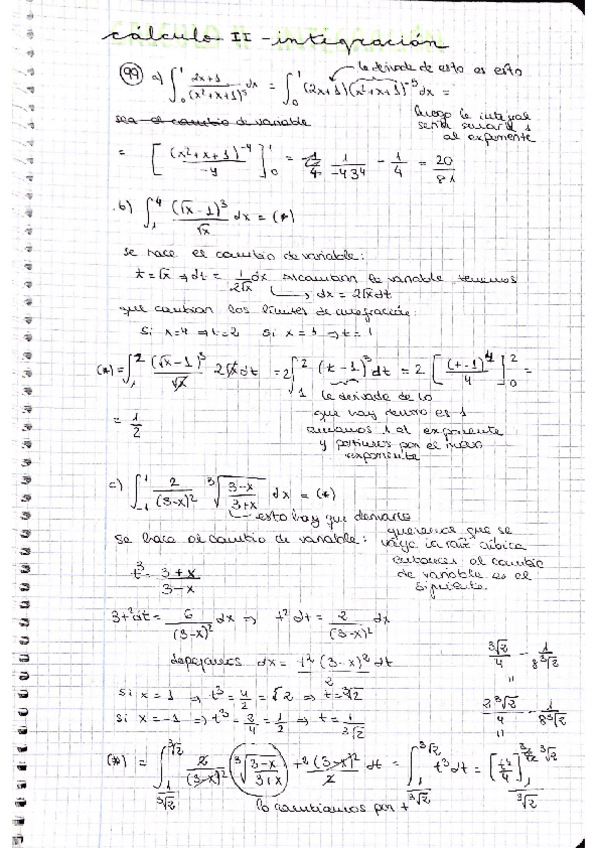 Cálculo II - integración
(99) a) ∫₀¹ (2x+1)/(x²+x+1)⁵ dx = ∫₀¹ (2x+1)(x²+x+1)⁻⁵ dx =
la derivada de esto es esto
luego la integral
sería sumarle 1
al exponente
sea el cambio de variable
= [(x²+x+1)⁻⁴/-4]₀¹ = 1/(-4·3⁴) - 1/4 = 20/81
b) ∫₁⁴ (√x-1)³/√x dx = (*)
se hace el cambio de variable:
t=√x ⇒ dt = 1/(2√x) dx al cambiar la variable tenemos
dx = 2√x dt
que cambiar los límites de integración:
Si x=4 ⇒ t=2 Si x=1 ⇒ t=1
(*) = ∫₁² (√x-1)³/√x 2√x dt = 2∫₁² (t-1)³ dt = 2[(t-1)⁴/4]₀² =
la derivada de lo
que hay dentro es 1
sumamos 1 al exponente
y partimos por el nuevo
exponente
= 1/2
c) ∫₋₁¹ 2/(3-x)² ∛((3-x)/(3+x)) dx = (*)
esto hay que
Se hace el cambio de variable:
queremos que se
vaya la raíz cúbica
entonces el cambio
de variable es el
siguiente.
t³ = (3+x)/(3-x)
3t²dt = 6/(3-x)² dx ⇒ t²dt = 2/(3-x)² dx
despejamos dx = t²(3-x)²/2 dt
Si x=1 ⇒ t³ = 4/2 = √2 ⇒ t = ∛2
Si x=-1 ⇒ t³ = 2/4 = 1/2 ⇒ t = 1/∛2
∛2/4 - 1/(8∛2)
=
2∛2/4 - 1/(8∛2)
=
(*) = ∫ 2/(3-x)² ∛((3-x)/(3+x)) t²(3-x)²/2 dt = ∫ t³dt = [t⁴/4]
lo cambiamos por t